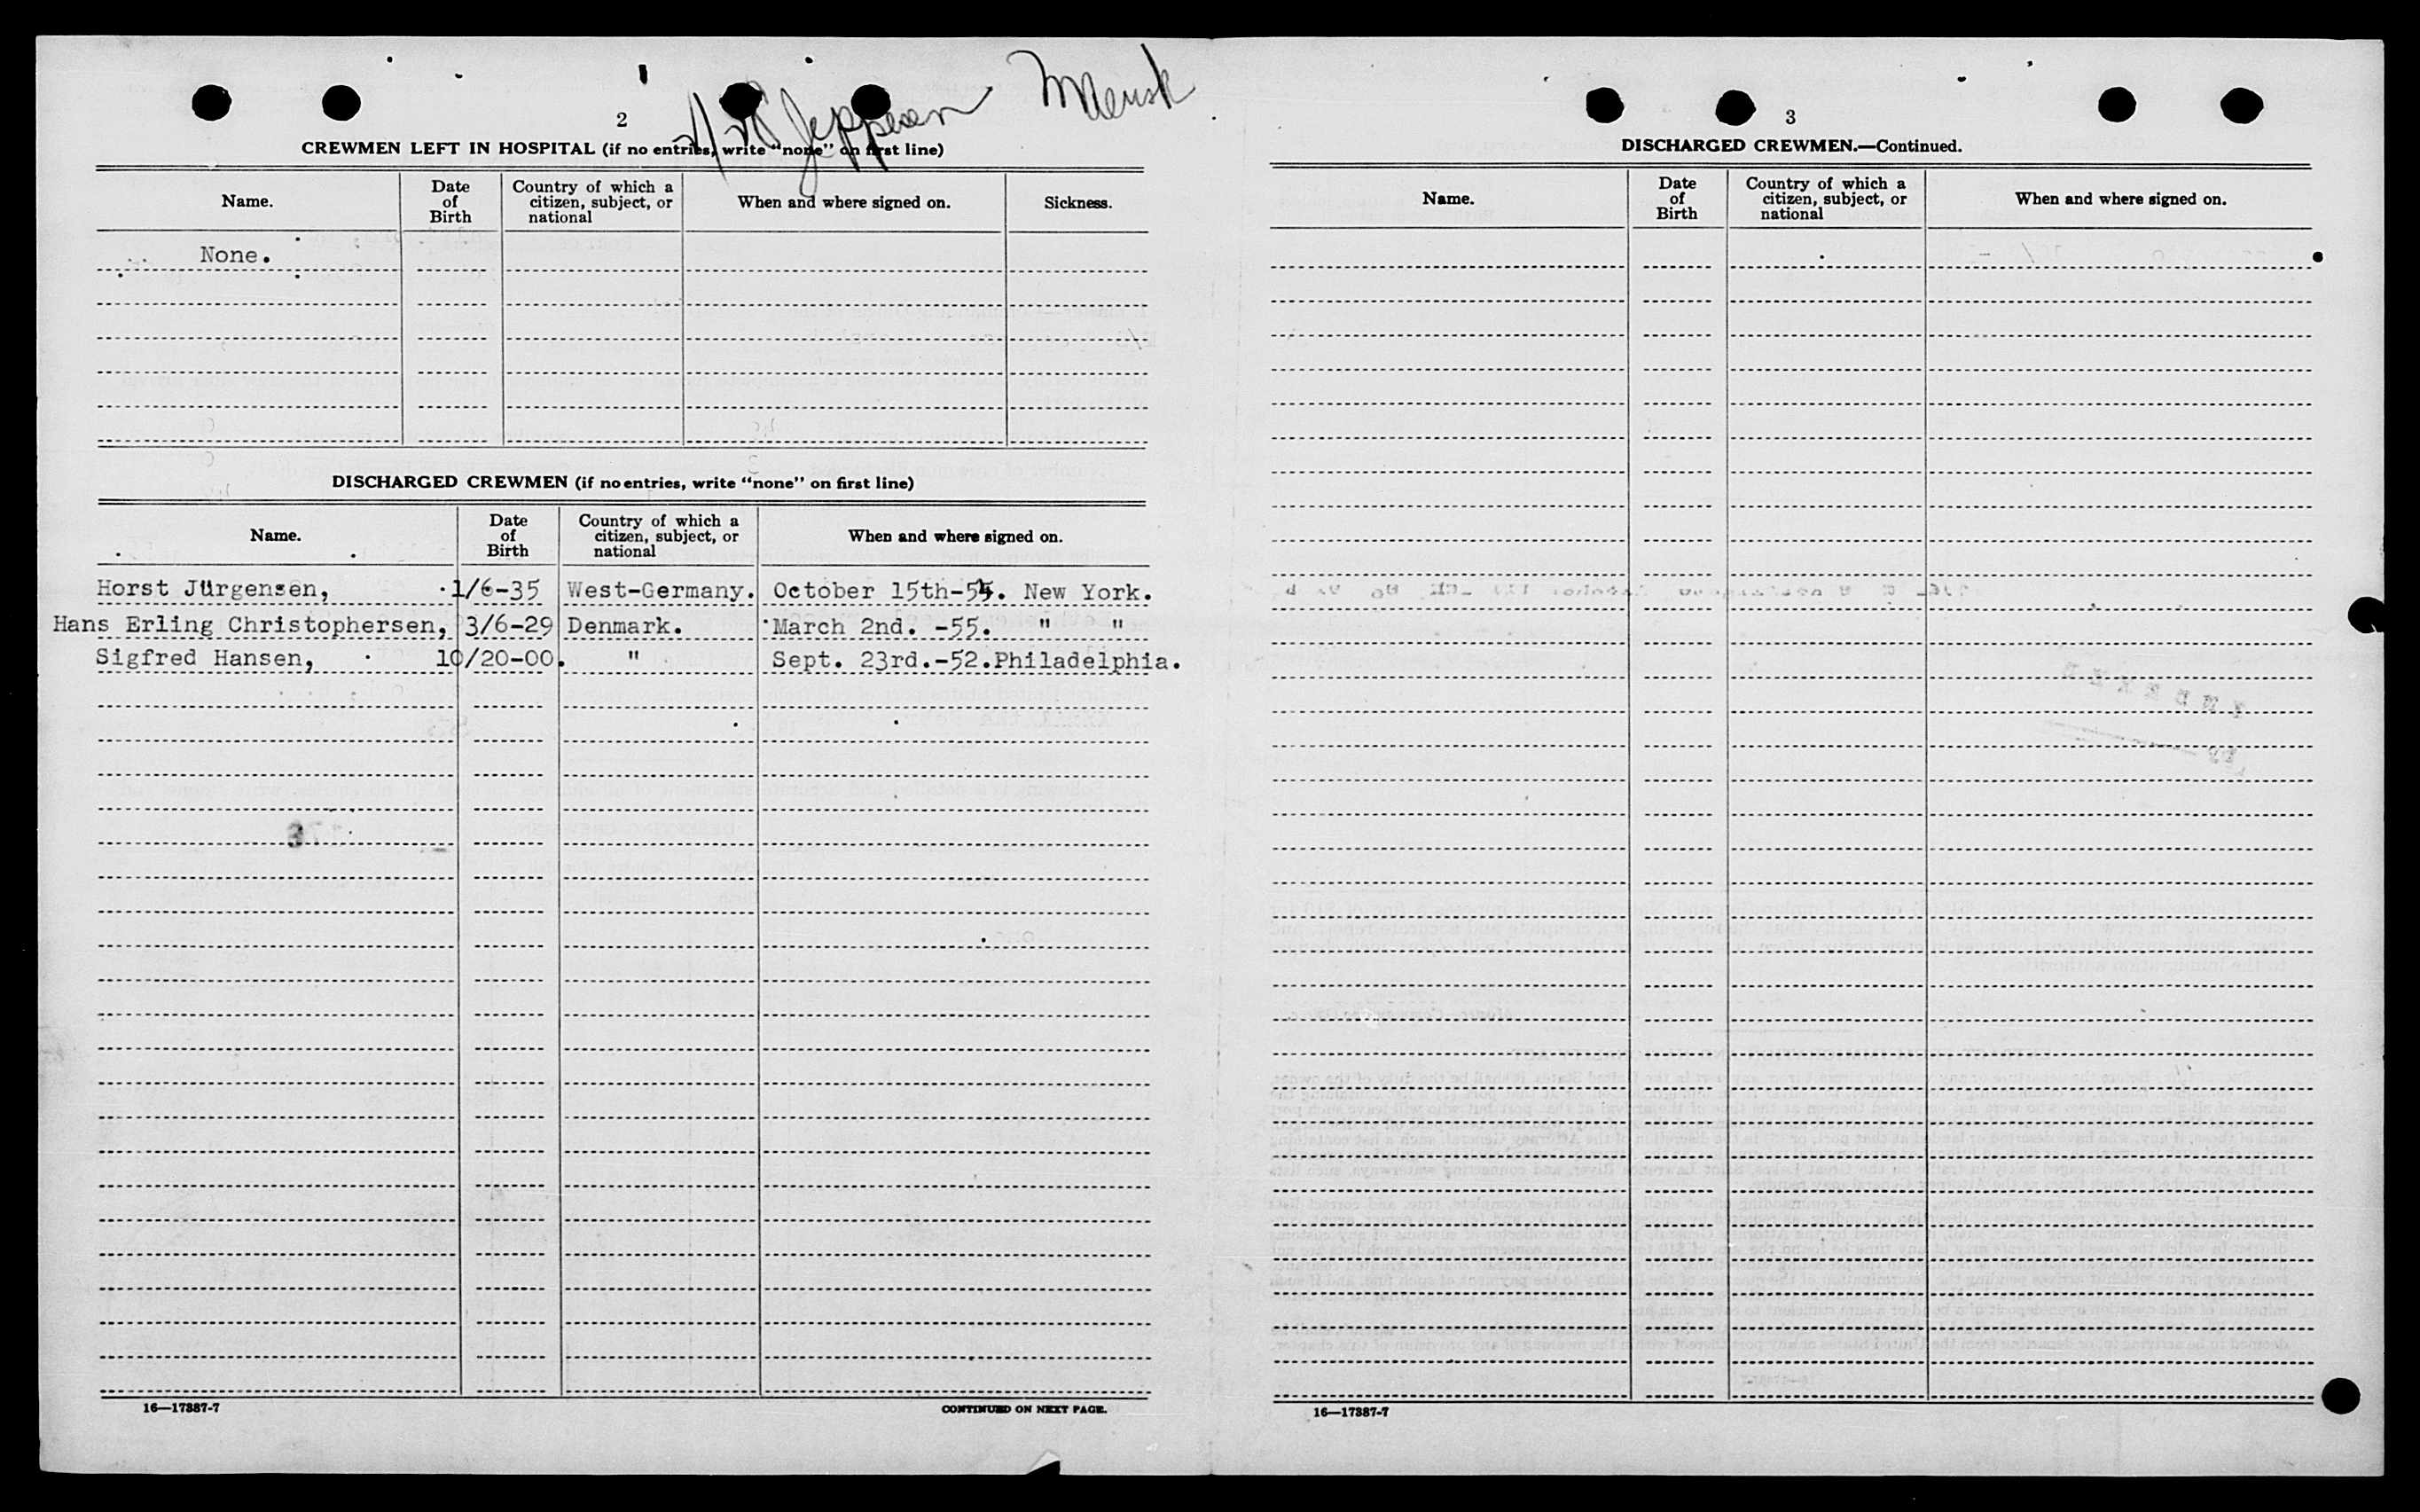 Jeppesen Maersk
2
CREWMEN LEFT IN HOSPITAL (if no entries, write "none" on first line)
Name.
Date of Birth
Country of which a citizen, subject, or national
When and where signed on.
Sickness.
None.
DISCHARGED CREWMEN (if no entries, write "none" on first line)
Name.
Date of Birth
Country of which a citizen, subject, or national
When and where signed on.
Horst Jürgensen, 1/6-35 West-Germany. October 15th-54. New York.
Hans Erling Christophersen, 3/6-29 Denmark. March 2nd. -55. " "
Sigfred Hansen, 10/20-00. " Sept. 23rd.-52. Philadelphia.
16—17387-7
CONTINUED ON NEXT PAGE.
3
DISCHARGED CREWMEN.—Continued.
Name.
Date of Birth
Country of which a citizen, subject, or national
When and where signed on.
16—17387-7